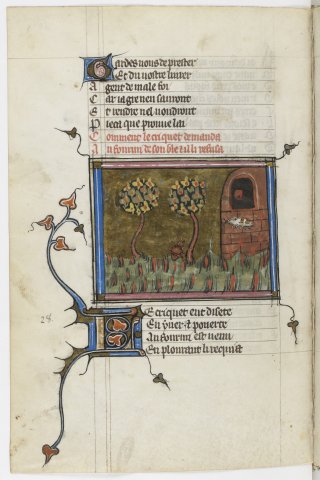 Gardes vous de prester
Et du vostre livrer
Argent de male foi
Car ja gre nen sauront
Et rendre nel voudront
Jeca que prouue lai
Comment le criquet demanda
Au fourmi de son ble & il li refusa
28.
Le criquet ent disete
En yuer & pouerte
Au fourmi est venu
En plourant li requist